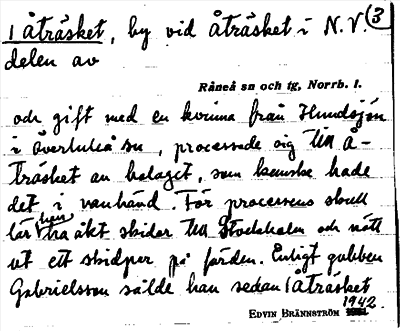 1 Åträsket, by vid Åträsket i N.V. (3
delen av
Råneå sn och tg, Norrb. l.
och gift med en kvinna från Hundsjön
i Överluleå sn, processade sig till Å-
träsket av bolaget, som kanske hade
det i vanhänd. För processens skull
lär han ha åkt skidor till Stockholm och nött
ut ett skidpar på färden. Enligt gubben
Gabrielsson sålde han sedan 1 Åträsket
EDVIN BRÄNNSTRÖM 1942